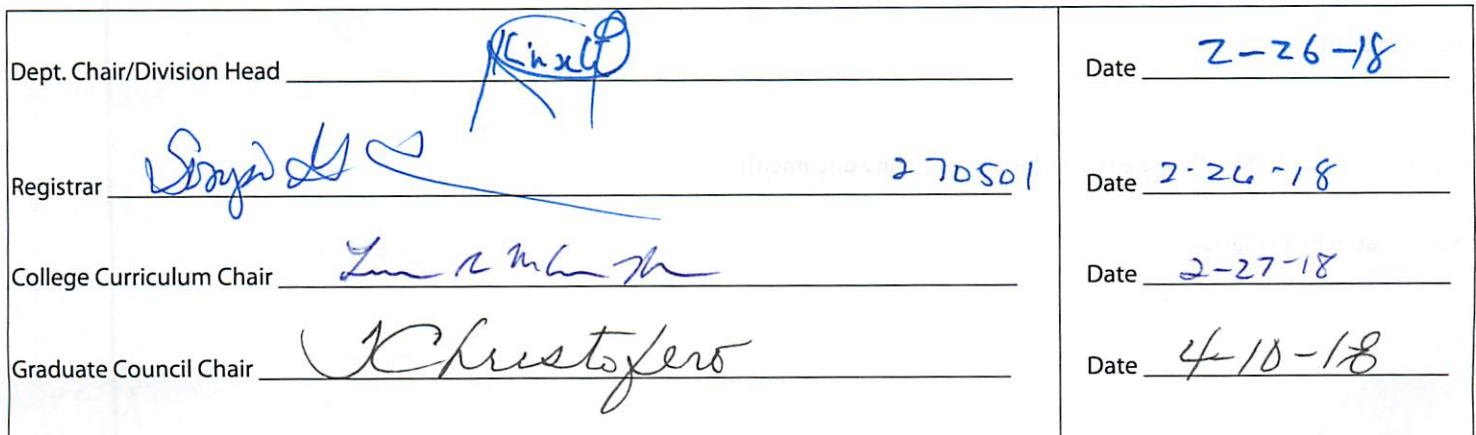 Dept. Chair/Division Head Date 2-26-18
Registrar 270501 Date 2-26-18
College Curriculum Chair Date 2-27-18
Graduate Council Chair TChristofero Date 4-10-18